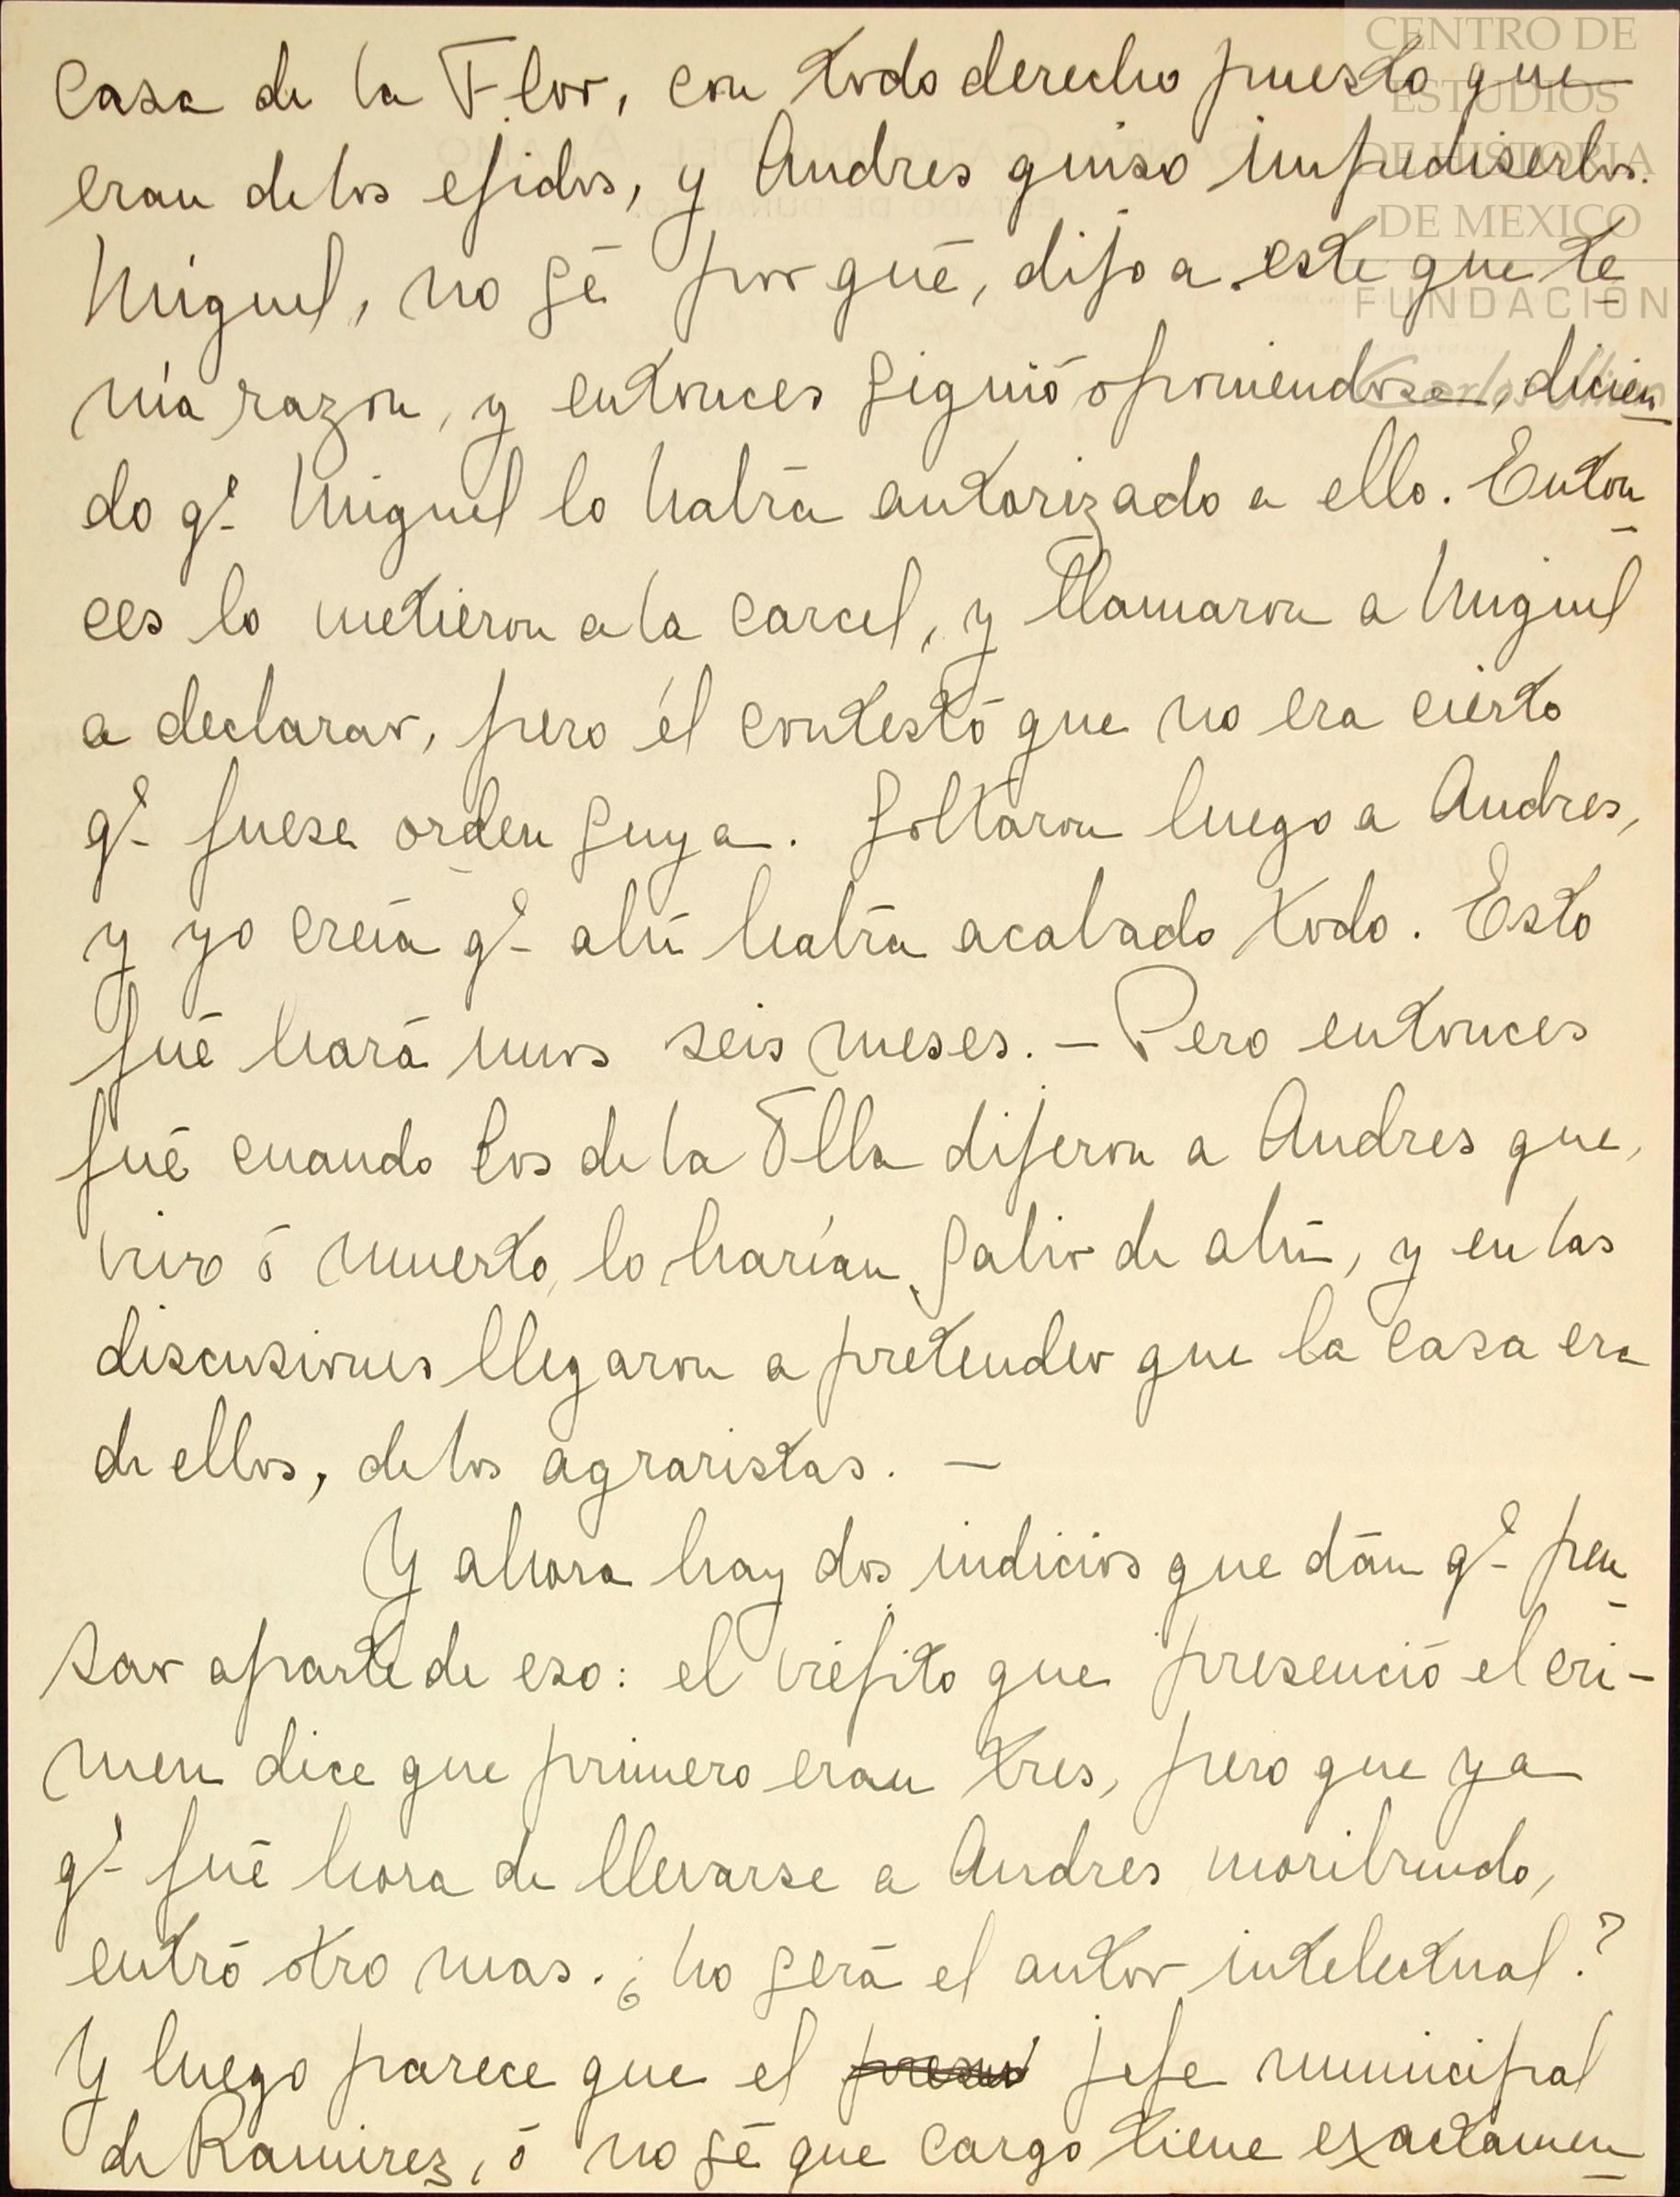 CENTRO DE
ESTUDIOS
DE HISTORIA
DE MEXICO
FUNDACIÓN
casa de la Flor, con todo derecho puesto que
eran delos ejidos, y Andres quiso impediserlos.
Miguel, no sé por qué, dijo a este que te
nía razon, y entonces siguió oponiendose, dicien
do qᵉ Miguel lo había autorizado a ello. Enton
ces lo metieron a la carcel, y llamaron a Miguel
a declarar, pero él contestó que no era cierto
qᵉ fuese orden suya. Soltaron luego a Andres,
y yo creía qᵉ ahí había acabado todo. Esto
fué hará unos seis meses. — Pero entonces
fué cuando los de la Olla dijeron a Andres que,
vivo ó muerto, lo harían salir de ahí, y en las
discusiones llegaron a pretender que la casa era
de ellos, delos agraristas. —
Y ahora hay dos indicios que dán qᵉ pen
sar aparte de eso: el viejito que presenció el cri-
men dice que primero eran tres, pero que ya
qᵉ fué hora de llevarse a Andres moribundo,
entró otro mas. ¿No será el autor intelectual?
Y luego parece que el jefe municipal
de Ramirez, ó no sé que cargo tiene exactamen